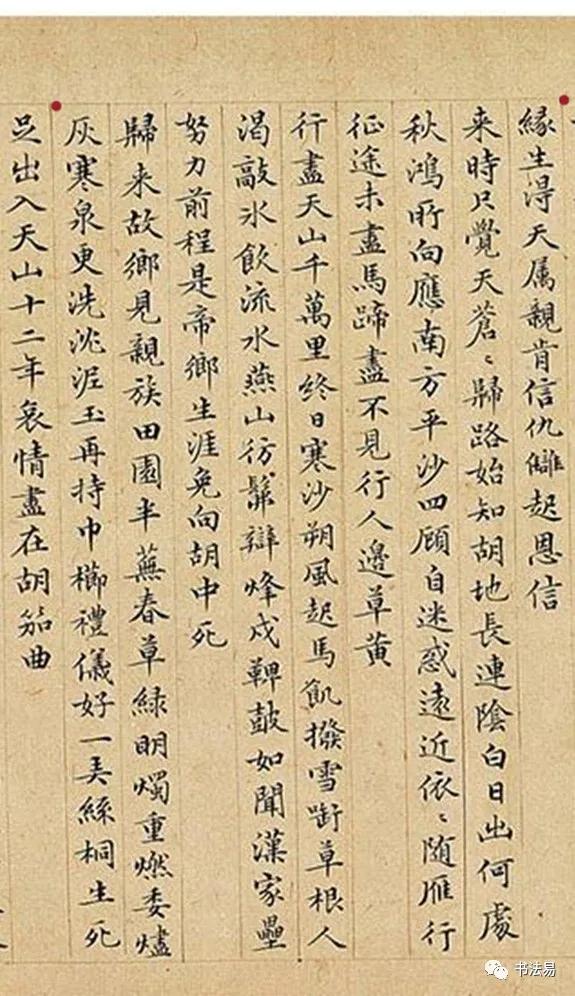 縁生淂天属親肯信仇讎起恩信
来時只覺天蒼〻歸路始知胡地長連陰白日出何處
秋鴻所向應南方平沙四顧自迷惑遠近依〻随雁行
征途未盡馬蹄盡不見行人邊草黄
行盡天山千萬里終日寒沙朔風起馬飢撥雪齧草根人
渴敲氷飲流水燕山彷髴辯烽戍鞞鼓如聞漢家壘
努力前程是帝鄉生涯免向胡中死
歸来故鄉見親族田園半蕪春草緑明燭重燃委燼
灰寒泉更洗沈泥玉再持巾櫛禮儀好一弄絲桐生死
足出入天山十二年哀情盡在胡笳曲
书法易